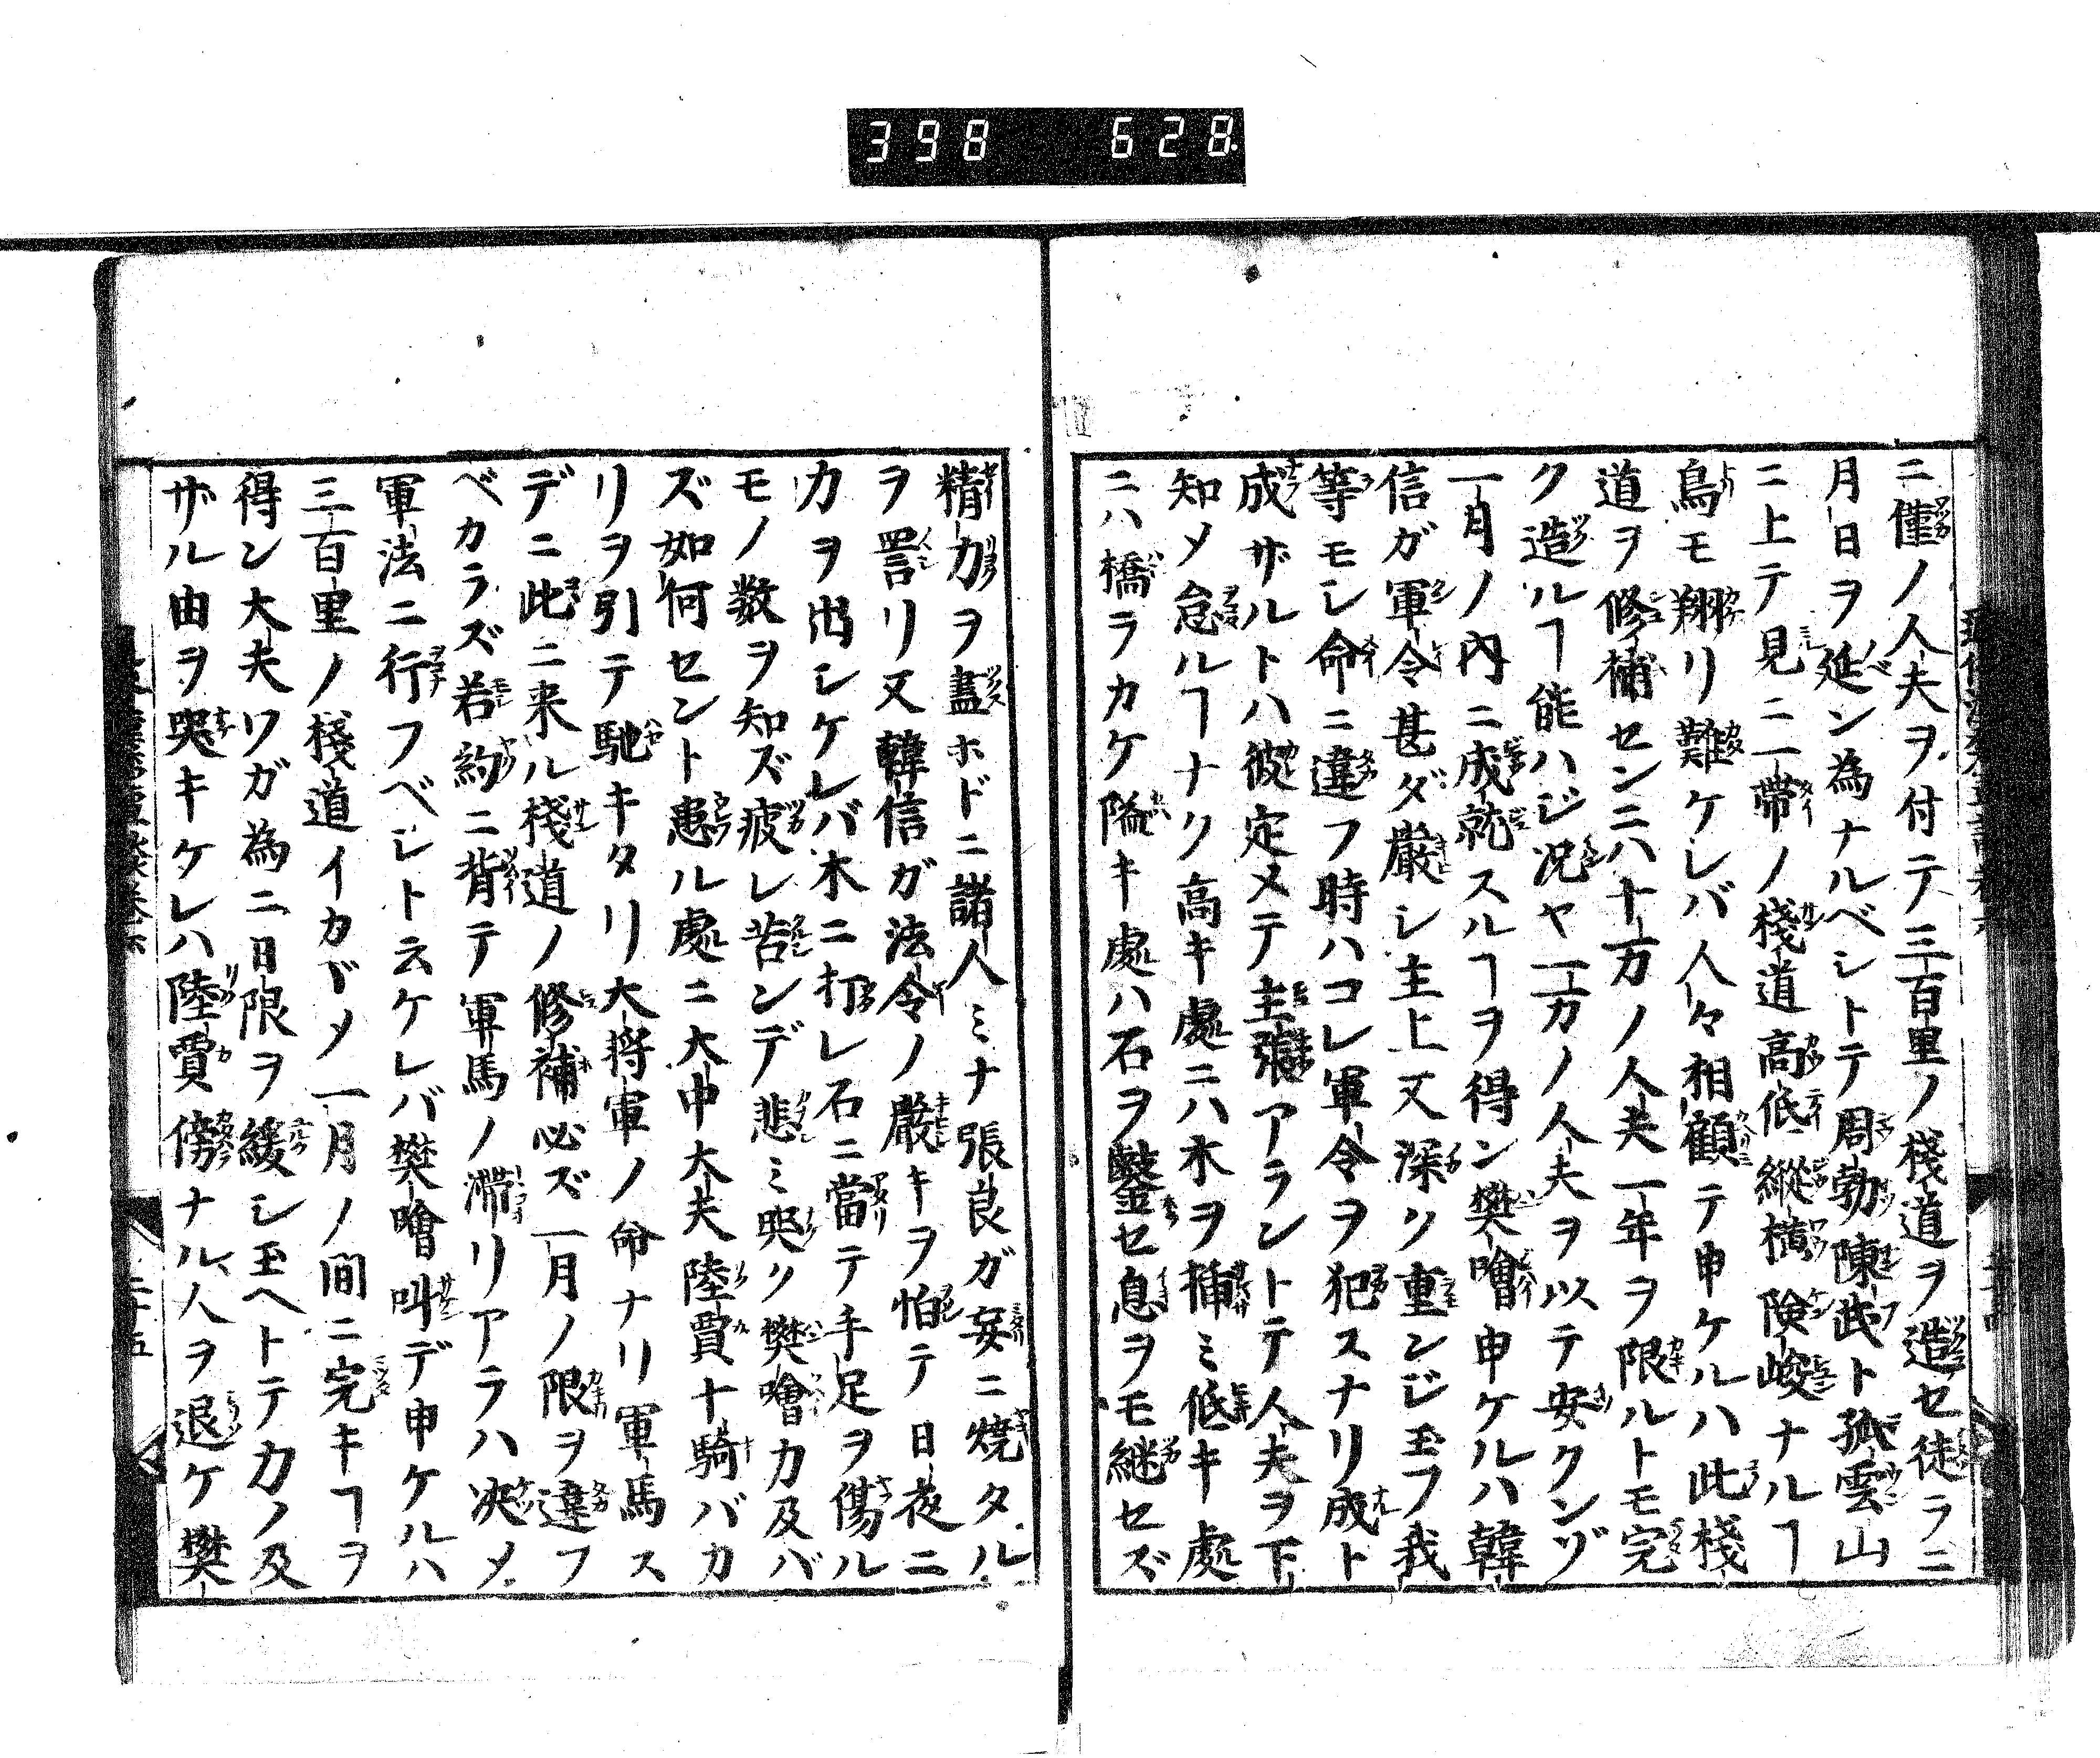 398 628
ニ僅ノ人夫ヲ付テ三百里ノ棧道ヲ造セ徒ラニ
月日ヲ延ン為ナルベシトテ周勃陳武ト孤雲山
ニ上テ見ニ一帶ノ棧道高低縱橫險峻ナルヿ
鳥モ翔リ難ケレバ人々相顧テ申ケルハ此棧
道ヲ修補センニハ十万ノ人夫一年ヲ限ルトモ完
ク造ルヿ能ハジ况ヤ一万ノ人夫ヲ以テ安クンゾ
一月ノ內ニ成就スルヿヲ得ン樊噲申ケルハ韓
信ガ軍令甚ダ嚴シ主上又深ク重ンジ玉フ我
等モシ命ニ違フ時ハコレ軍令ヲ犯スナリ成ト
成ザルトハ彼定メテ主張アラントテ人夫ヲ下
知メ怠ルヿナク高キ處ニハ木ヲ揷ミ低キ處
ニハ橋ヲカケ隘キ處ハ石ヲ鑿セ息ヲモ継セズ
精力ヲ盡ホドニ諸人ミナ張良ガ妄ニ燒タル
ヲ詈リ又韓信ガ法令ノ嚴キヲ怕テ日夜ニ
力ヲ出シケレバ木ニ打レ石ニ當テ手足ヲ傷ル
モノ数ヲ知ズ疲レ苦ンデ悲ミ哭ク樊噲力及バ
ズ如何セント患ル處ニ大中大夫陸賈十騎バカ
リヲ引テ馳キタリ大将軍ノ命ナリ軍馬ス
デニ此ニ来ル棧道ノ修補必ズ一月ノ限ヲ違フ
ベカラズ若約ニ背テ軍馬ノ滯リアラハ决メ
軍法ニ行フベシト云ケレバ樊噲叫デ申ケルハ
三百里ノ棧道イカヾメ一月ノ間ニ完キヿヲ
得ン大夫ワガ為ニ日限ヲ緩シ玉ヘトテ力ノ及
ザル由ヲ哭キケレハ陸賈傍ナル人ヲ退ケ樊